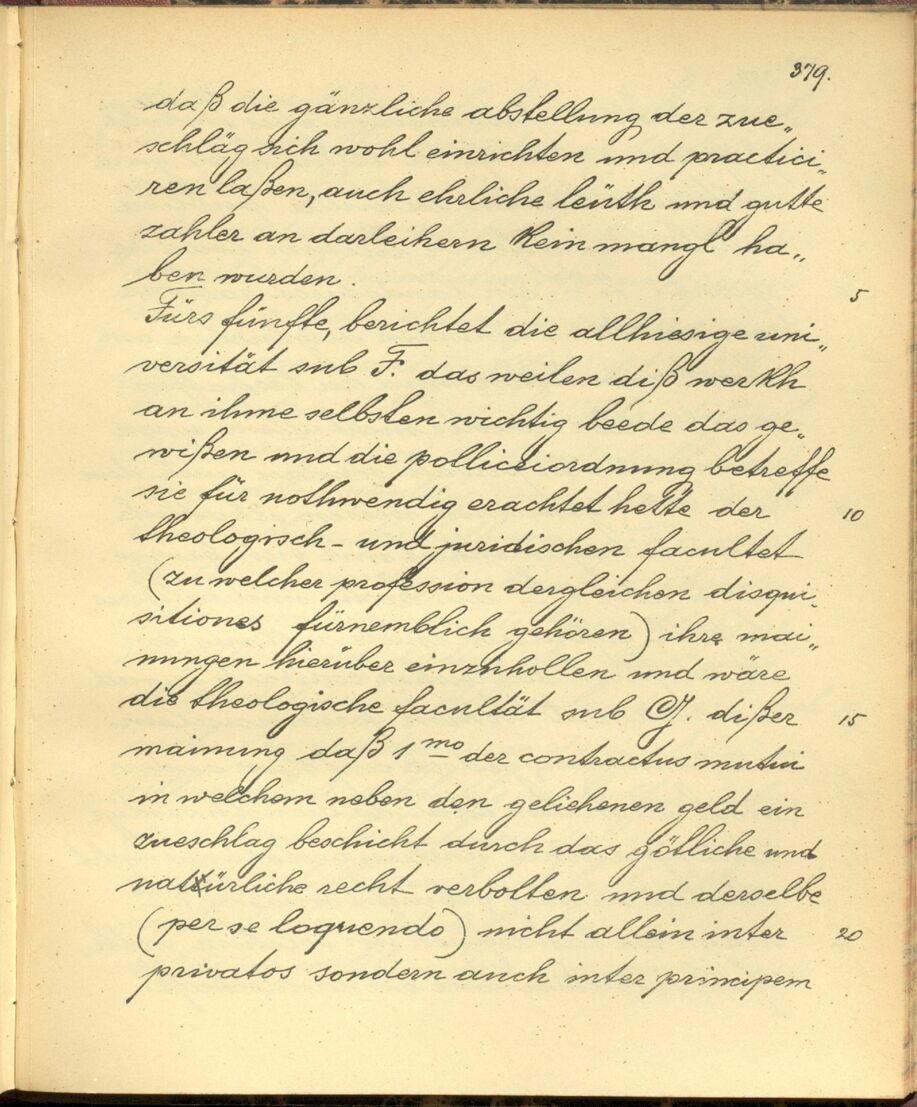 379.
daß die gänzliche abstellung der zue„
schläg sich wohl einrichten und practici„
ren laßen, auch ehrliche leüth und gutte
zahler an darleihern kein mangl ha„
ben wurden.
5
Fürs fünfte, berichtet die allhiesige uni„
versität sub F. das weilen diß werkh
an ihme selbsten wichtig beede das ge„
wißen und die polliceiordnung betreffe
sie für nothwendig erachtet hette der
10
theologisch- und juridischen facultet
(zu welcher profession dergleichen disqui„
sitiones fürnemblich gehören) ihre mai„
nungen hierüber einzuhollen und wäre
die theologische facultät sub G. dißer
15
mainung daß 1mo der contractus mutui
in welchem neben den geliehenen geld ein
zueschlag beschicht durch das götliche und
natürliche recht verbotten und derselbe
(per se loquendo) nicht allein inter
20
privatos sondern auch inter principem